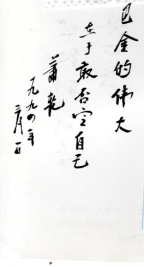 巴金的伟大
在于敢否定自己
萧乾
一九九四年
二月一日